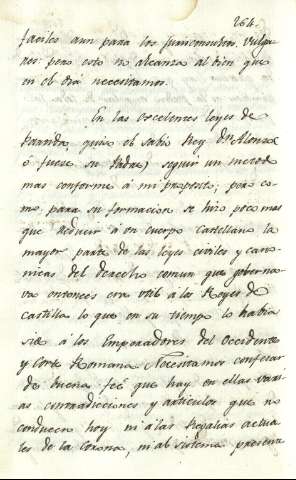 264.
faciles aun para los Jurisconsultos Vulga
res: pero esto no alcanza al bien que
en el dia necesitamos.
En las excelentes leyes de
Partida, quiso el sabio Rey Dn. Alonso
ó fuese su Padre) seguir un metodo
mas conforme á mi proposito; pero co-
mo para su formacion se hizo poco mas
que reducir á un cuerpo castellano la
mayor parte de las leyes civiles y cano-
nicas del derecho comun que goberna-
va entonces era util á los Reyes de
Castilla lo que en su tiempo lo habia
sido á los Emperadores del Occidente
y Corte Romana. Necesitamos confesar
de buena feé que hay en ellas vari
as contradicciones y articulos que no
conducen hoy ni á las Regalias actua
les de la Corona, ni al sistema presente